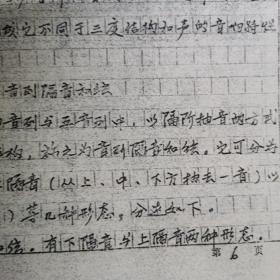 它不同于三度结构和声的音响特性
音列隔音和弦
音列与五音列中，以隔所抽音的方式
构，称之为音列隔音和弦。它可分为
隔音（从上、中、下方抽去一音）以
）等几种形态，分述如下。
和弦。有下隔音与上隔音两种形态。
第 6 页